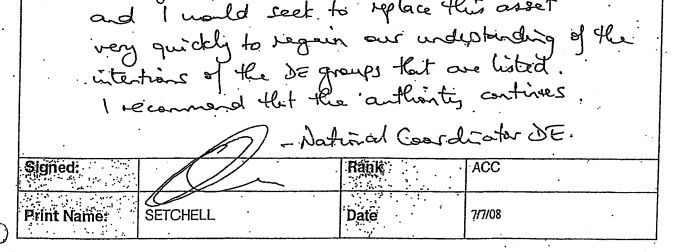 and I would seek to replace this asset
very quickly to regain our understanding of the
intentions of the DE groups that are listed.
I recommend that the authority continues.
- National Coordinator DE.
Signed: Rank ACC
Print Name: SETCHELL Date 7/7/08